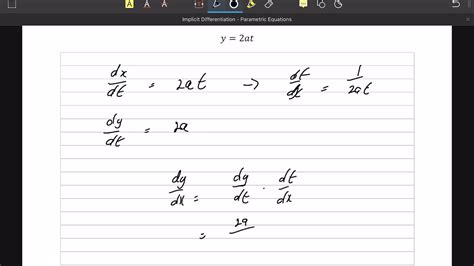 Implicit Differentiation - Parametric Equations
y = 2at
dx/dt = 2at → dt/dx = 1/2at
dy/dt = 2a
dy/dx = dy/dt · dt/dx
= 2a/